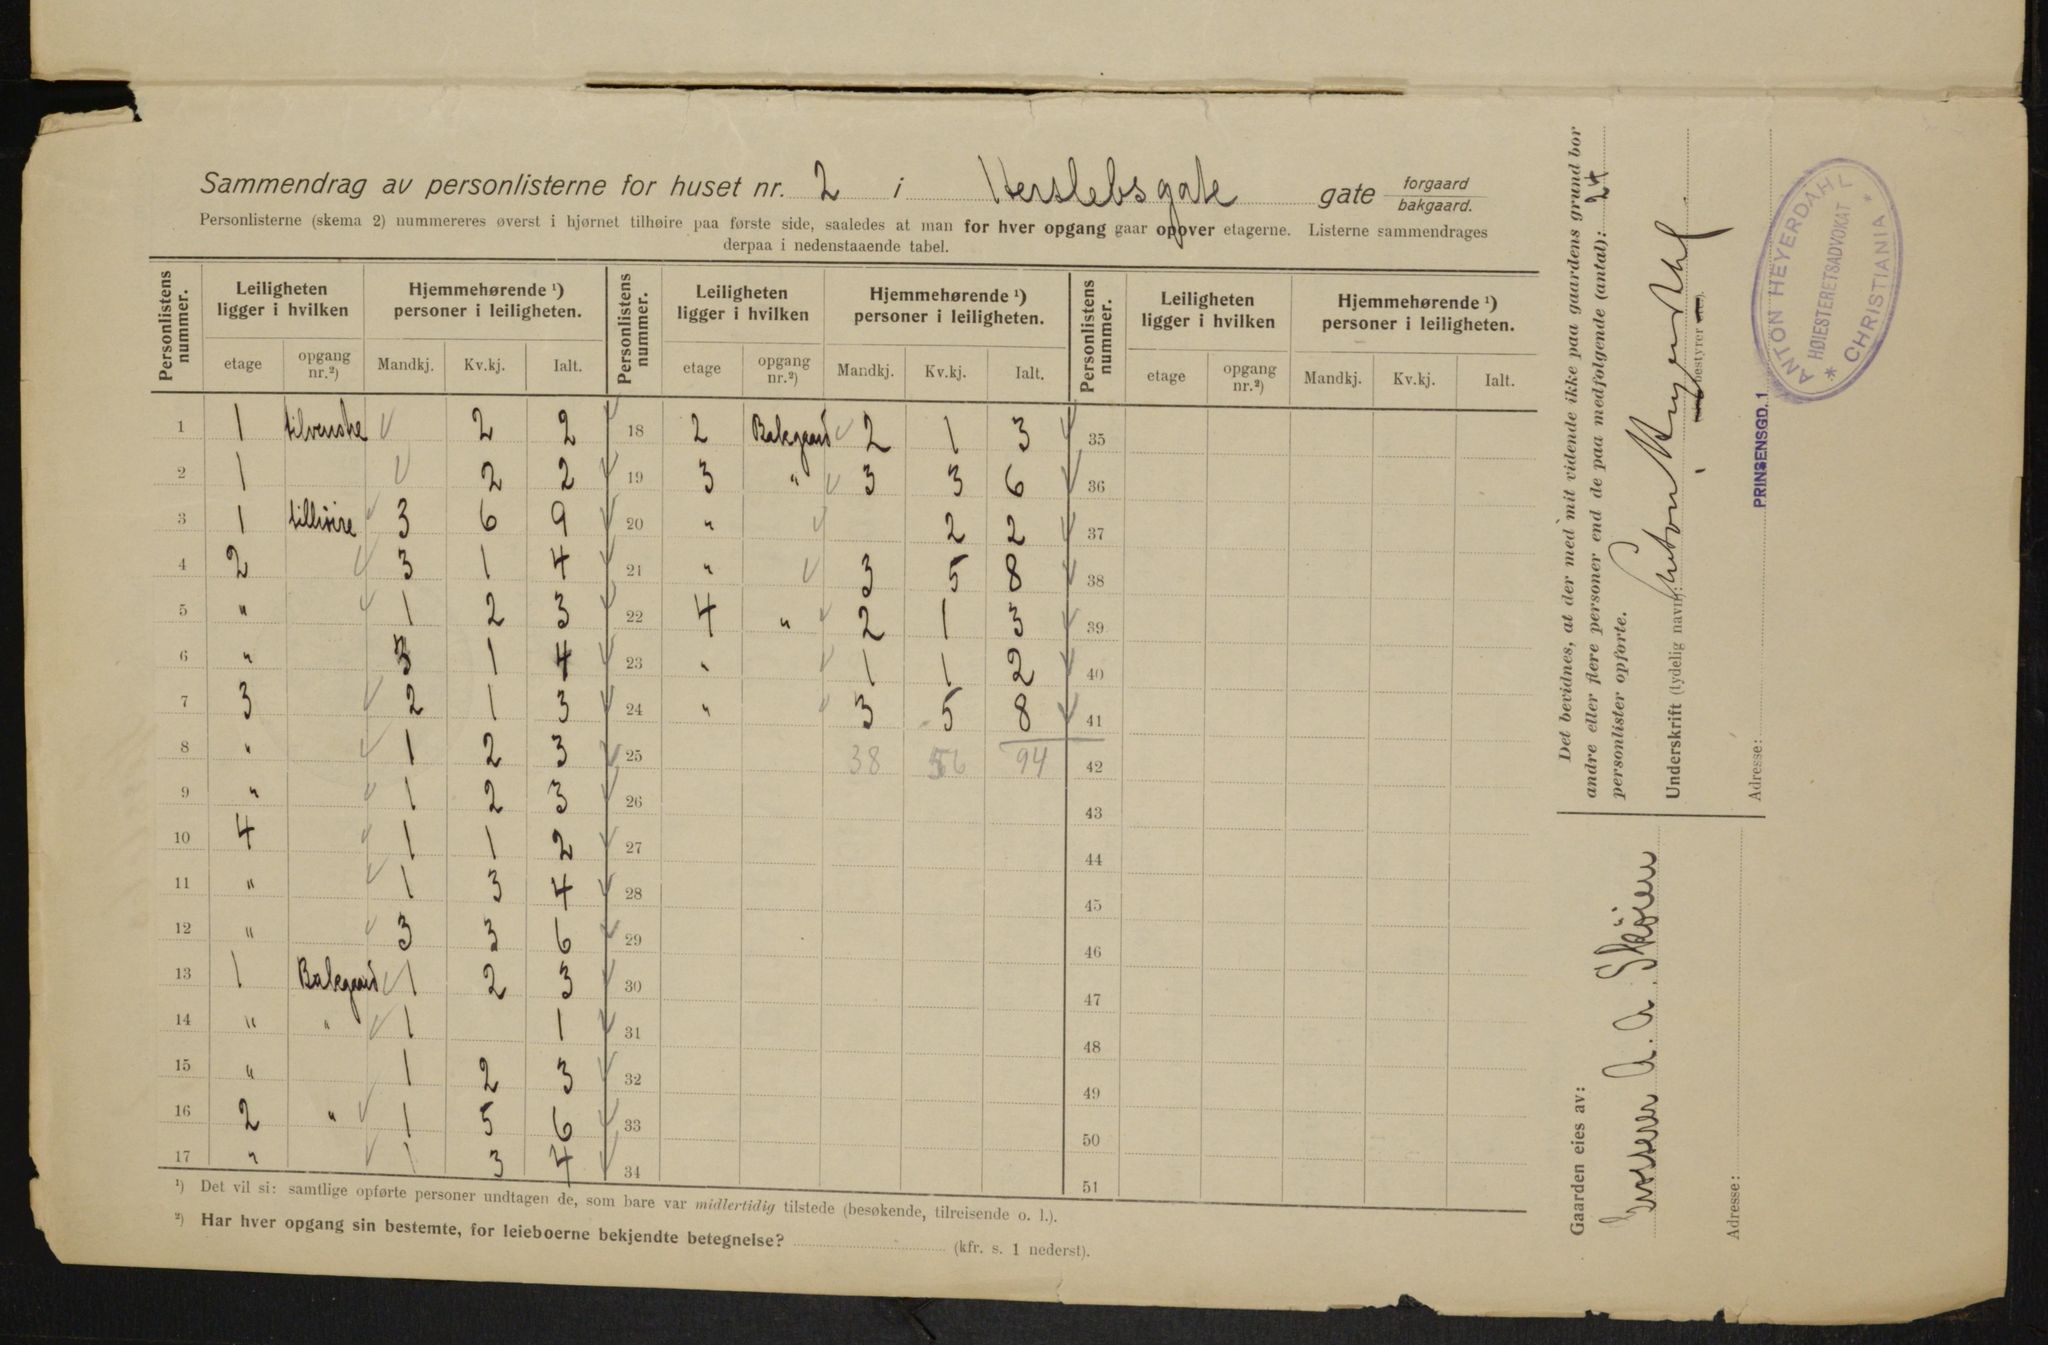 Sammendrag av personlisterne for huset nr. 2 i Herslebsgate gate forgaard bakgaard.
Personlisterne (skema 2) nummereres øverst i hjørnet tilhøire paa første side, saaledes at man for hver opgang gaar opover etagerne. Listerne sammendrages
derpaa i nedenstaaende tabel.
Personlistens nummer. Leiligheten ligger i hvilken Hjemmehørende ¹) personer i leiligheten. Personlistens nummer. Leiligheten ligger i hvilken Hjemmehørende ¹) personer i leiligheten. Personlistens nummer. Leiligheten ligger i hvilken Hjemmehørende ¹) personer i leiligheten.
etage opgang nr.²) Mandkj. Kv.kj. Ialt. etage opgang nr.²) Mandkj. Kv.kj. Ialt. etage opgang nr.²) Mandkj. Kv.kj. Ialt.
1 1 tilvenstre 2 2 18 2 Bakgaard 2 1 3 35
2 1 2 2 19 3 " 3 3 6 36
3 1 tilhøire 3 6 9 20 " 2 2 37
4 2 3 1 4 21 " 3 5 8 38
5 " 1 2 3 22 4 " 2 1 3 39
6 " 3 1 4 23 " 1 1 2 40
7 3 2 1 3 24 " 3 5 8 41
8 " 1 2 3 25 38 56 94 42
9 " 1 2 3 26 43
10 4 1 1 2 27 44
11 " 1 3 4 28 45
12 " 3 3 6 29 46
13 1 Bakgaard 1 2 3 30 47
14 " " 1 1 31 48
15 " 1 2 3 32 49
16 2 " 1 5 6 33 50
17 " 1 3 4 34 51
¹) Det vil si: samtlige opførte personer undtagen de, som bare var midlertidig tilstede (besøkende, tilreisende o. l.).
²) Har hver opgang sin bestemte, for leieboerne bekjendte betegnelse? (kfr. s. 1 nederst).
Det bevidnes, at der med mit vidende ikke paa gaardens grund bor
andre eller flere personer end de paa medfølgende (antal): 24
personlister opførte.
Underskrift (tydelig navn): Anton Heyerdahl
bestyrer
Adresse: PRINSENSGD. 1
ANTON HEYERDAHL
HØIESTERETSADVOKAT
* CHRISTIANIA *
Gaarden eies av:
A. A. Skøien
Adresse: